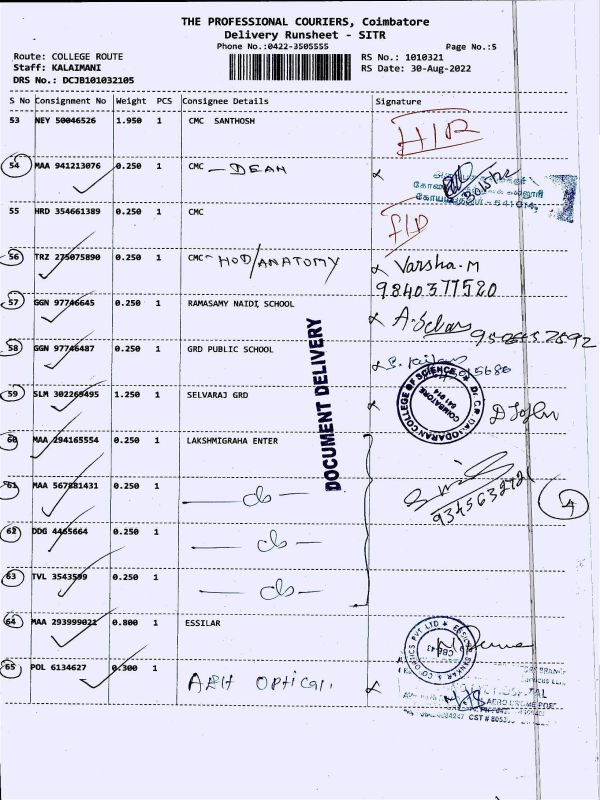 THE PROFESSIONAL COURIERS, Coimbatore
Delivery Runsheet - SITR
Phone No.:0422-3505555
Page No.:5
Route: COLLEGE ROUTE
RS No.: 1010321
Staff: KALAIMANI
RS Date: 30-Aug-2022
DRS No.: DCJB101032105
S No Consignment No Weight PCS Consignee Details Signature
53 NEY 50046526 1.950 1 CMC SANTHOSH
54 MAA 941213076 0.250 1 CMC - DEAN
55 HRD 354661389 0.250 1 CMC
56 TRZ 275075890 0.250 1 CMC - HOD/ANATOMY Varsha.M
9840377520
57 GGN 97746645 0.250 1 RAMASAMY NAIDI, SCHOOL
58 GGN 97746487 0.250 1 GRD PUBLIC SCHOOL
59 SLM 302269495 1.250 1 SELVARAJ GRD
60 MAA 294165554 0.250 1 LAKSHMIGRAHA ENTER
61 MAA 567881431 0.250 1 - do -
62 DDG 4465664 0.250 1 - do -
63 TVL 3543599 0.250 1 - do -
4
64 MAA 293999021 0.800 1 ESSILAR
65 POL 6134627 0.300 1
DOCUMENT DELIVERY
COIMBATORE
641 014